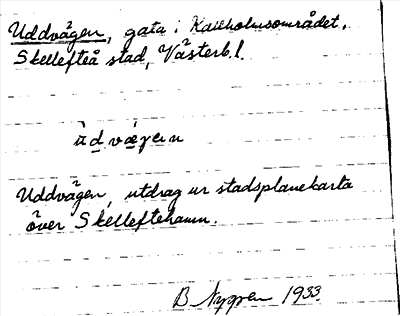 Uddvägen, gata i Kallholmsområdet,
Skellefteå stad, Västerb.l.
ùd vǽgen
Uddvägen, utdrag ur stadsplanekarta
över Skelleftehamn.
B. Nygren 1933